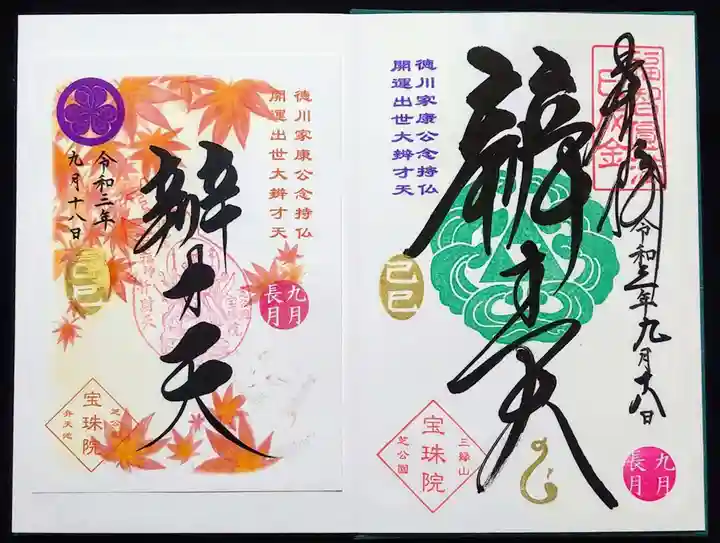 奉拝
令和三年九月十八日
福智円満
巳成金
辨才天
徳川家康公念持仏
開運出世大辨才天
己巳
三縁山
宝珠院
芝公園
九月
長月
徳川家康公念持仏
開運出世大辨才天
辨才天
令和三年
九月十八日
己巳
九月
長月
芝公園
宝珠院
弁天池